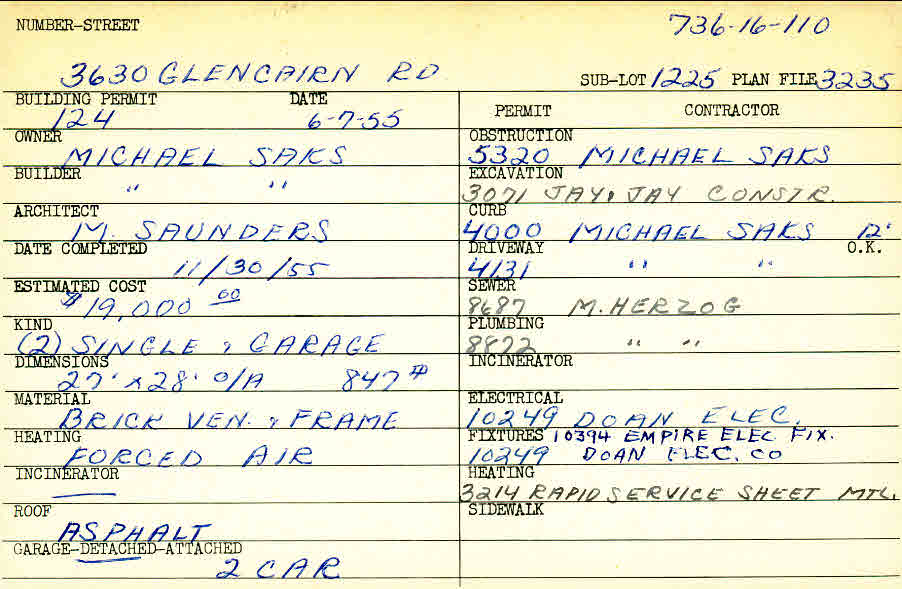 NUMBER-STREET 736-16-110
3630 GLENCAIRN RD. SUB-LOT 1225 PLAN FILE 3235
BUILDING PERMIT DATE
124 6-7-55
OWNER
MICHAEL SAKS
BUILDER
" "
ARCHITECT
M. SAUNDERS
DATE COMPLETED
11/30/55
ESTIMATED COST
$19,000 00
KIND
(2) SINGLE & GARAGE
DIMENSIONS
27' x 28' O/A 847 #
MATERIAL
BRICK VEN. & FRAME
HEATING
FORCED AIR
INCINERATOR
—
ROOF
ASPHALT
GARAGE-DETACHED-ATTACHED
2 CAR
PERMIT CONTRACTOR
OBSTRUCTION
5320 MICHAEL SAKS
EXCAVATION
3071 JAY & JAY CONSTR.
CURB
4000 MICHAEL SAKS 12'
DRIVEWAY O.K.
4131 " "
SEWER
8687 M. HERZOG
PLUMBING
8872 " "
INCINERATOR
ELECTRICAL
10249 DOAN ELEC.
FIXTURES 10394 EMPIRE ELEC FIX.
10249 DOAN ELEC. CO
HEATING
3214 RAPID SERVICE SHEET MTL.
SIDEWALK